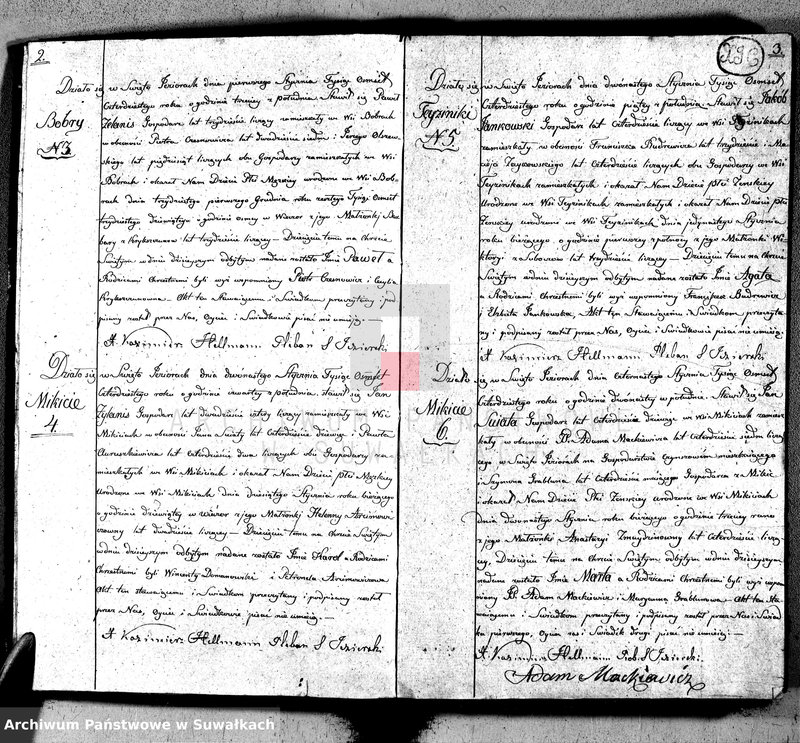 2.
Bobry
N 3
Działo się w Święto Jeziorach dnia pierwszego Stycznia Tysiąc Osmset
Czterdziestego roku o godzinie trzeciej z południa, Stawił się Paweł
Gospodarz lat trzydzieście liczący zamieszkały we Wsi Bobrach
w obecności Piotra lat dwadzieścia siedm i Jerzego
lat piędziesiąt liczących obu Gospodarzy zamieszkałych we Wsi
Bobrach i okazał Nam Dziecię Płci Męzkiey urodzone we Wsi Bob-
rach dnia trzydziestego pierwszego Grudnia roku zeszłego Tysiąc Osmset
trzydziestego dziewiątego i godzinie osmey w Wieczor z jego Małżonki Bar-
bary z lat trzydzieście liczącey — Dziecięciu temu na chrzcie
Świętym w dniu dzisieyszym odbytym nadane zostało Imie Paweł a
Rodzicami Chrzestnemi byli wyż wspomniany Piotr i
Akt ten Stawaiącemu i Świadkom przeczytany i pod-
pisany został przez Nas, Oycie i Świadkowie pisać nie umieią. —
X. Kazimierz Hellmann Pleban S Jezierski
Mikicie
4
Działo się w Święto Jeziorach dnia dwonastego Stycznia Tysiąc Osmset
Czterdziestego roku o godzinie czwartey z południa, stawił się Jan
Gospodarz lat dwadzieścia cztery liczący zamieszkały we Wsi
Mikiciach w obecności Jana lat Czterdzieście dziewięć i Pawła
lat Czterdzieście dwa liczących obu Gospodarzy za-
mieszkałych we Wsi Mikiciach i okazał Nam Dziecię płci Męzkiey
Urodzone we Wsi Mikiciach dnia dziesiątego Stycznia roku bieżącego
o godzinie dziewiątey w wieczor z jego Małżonki Heleny
lat dwadzieście liczącey — Dziecięciu temu na Chrzcie Świętym
w dniu dzisieyszym odbytym nadane zostało Imie Karol a Rodzicami
Chrzestnemi byli Wincenty Domanowski i Petronela
Akt ten stawaiącemu i Świadkom przeczytany i podpisany został
przez Nas, Oycie i Świadkowie pisać nie umieią. —
X. Kazimierz Hellmann Pleban S Jezierski
3.
N 5.
Działo się w Święto Jeziorach dnia dwonastego Stycznia Tysiąc Osmset
Czterdziestego roku o godzinie piątey z południa, Stawił się Jakob
Jankowski Gospodarz lat Czterdzieście liczący we Wsi
zamieszkały w obecności Franciszka Budrewicza lat trzydzieście i Ma-
cieja lat Czterdzieście liczących obu Gospodarzy we Wsi
zamieszkałych i okazał Nam Dziecię płci Żenskiey
Urodzone we Wsi zamieszkałych i okazał Nam Dziecię płci
Żenskiey urodzone we Wsi dnia jedynastego Stycznia
roku bieżącego o godzinie pierwszey z północy z jego Małżonki Wi-
ktoryi z lat trzydzieście liczącey. — Dziecięciu temu na chrzcie
Świętym w dniu dzisieyszym odbytym nadane zostało Imie Agata
a Rodzicami Chrzestnemi byli wyż wspomniony Franciszek Budrewicz
i Elżbieta Jankowska, Akt ten Stawaiącemu i Świadkom przeczyta-
ny i podpisany został przez Nas, Oycie i Świadkowie pisać nie umieią. —
X. Kazimierz Hellmann Pleban S Jezierski.
Mikicie
6.
Działo się w Święto Jeziorach dnia Czternastego Stycznia Tysiąc Osmset
Czterdziestego roku o godzinie dwonastey w południe, Stawił się Jan
Gospodarz lat Czterdzieście dziewięć we Wsi Mikiciach zamiesz-
kały w obecności Adama Mackiewicza lat Czterdzieście siedm liczą-
cego w Święto Jeziorach na Gospodarstwie Czynszowem mieszkaiącego
i Szymona Grabluna lat Czterdzieście maiącego Gospodarza z Mikić
i okazał Nam Dziecię Płci Żenskiey urodzone we Wsi Mikiciach
dnia dwonastego Stycznia roku bieżącego o godzinie trzeciey rano
z jego Małżonki Anastazyi lat Czterdzieście liczą-
cey, Dziecięciu temu na Chrzcie Świętym odbytym w dniu dzisieyszym
nadane zostało Imie Marta a Rodzicami Chrzestnemi byli wyż wspo-
mniony Adam Mackiewicz i Maryanna Akt ten Sta-
waiącemu i Świadkom przeczytany i podpisany został przez Nas i Świad-
ka pierwszego, Oyciec zaś i Świadek drugi pisać nie umieią. —
X. Kazimierz Hellmann Pleb. S Jezierski.
Adam Mackiewicz
Archiwum Państwowe w Suwałkach